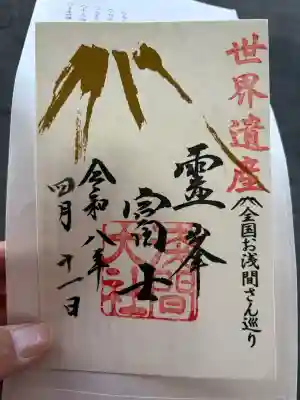 世界遺産
全国お浅間さん巡り
霊峰
富士
浅間大社
令和八年
四月十一日